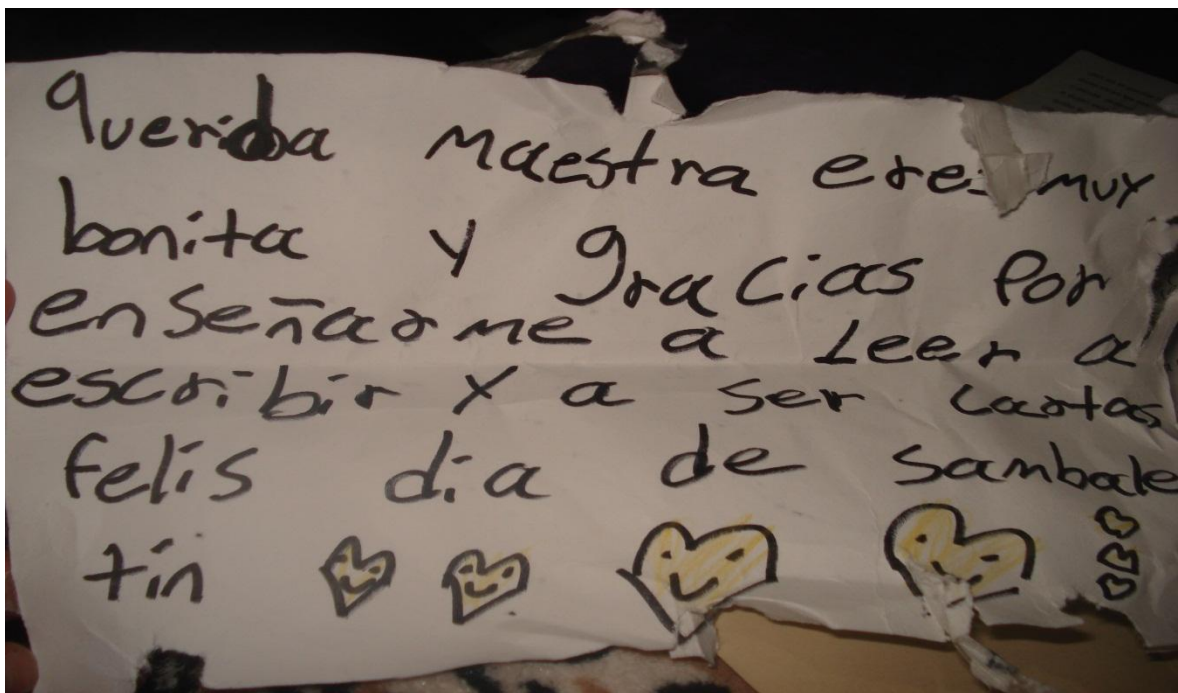 querida maestra eres muy
bonita y gracias por
enseñarme a Leer a
escribir y a ser cartas
felis dia de sambale
tin